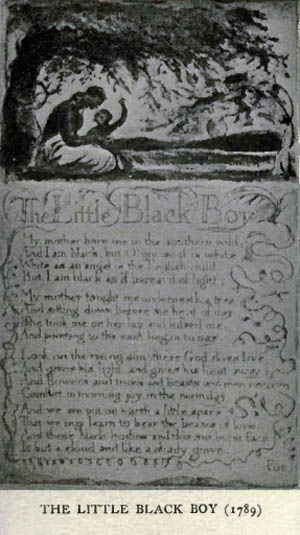 The Little Black Boy
My mother bore me in the southern wild,
And I am black, but O! my soul is white
White as an angel is the English child:
But I am black as if bereav'd of light.
My mother taught me underneath a tree
And sitting down before the heat of day
She took me on her lap and kissed me,
And pointing to the east began to say.
Look on the rising sun: there God does live
And gives his light, and gives his heat away.
And flowers and trees and beasts and men recieve
Comfort in morning joy in the noonday.
And we are put on earth a little space,
That we may learn to bear the beams of love,
And these black bodies and this sun-burnt face
Is but a cloud, and like a shady grove.
For
THE LITTLE BLACK BOY (1789)